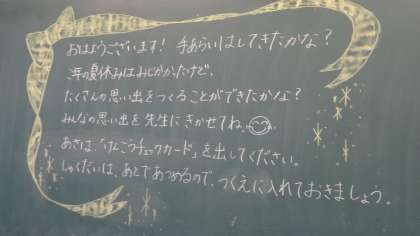 おはようございます! 手あらいはしてきたかな?
年の夏休みはみじかかったけど、
たくさんの思い出をつくることができたかな?
みんなの思い出を先生にきかせてね。
あさは、「けんこうチェックカード」を出してください。
しゅくだいは、あとであつめるので、つくえに入れておきましょう。